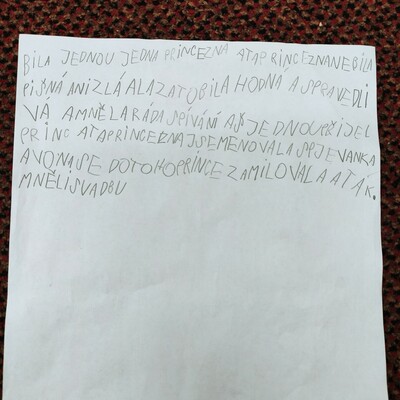 BILA JEDNOU JEDNA PRINCEZNA ATAPRINCEZNANEBILA
PIŠNÁ ANIZLÁ ALAZATOBILA HODNÁ ASPRAVEDLI
VÁ AMNĚLARÁDASPÍVÁNÍ AŠJEDNOUPŘIJEL
PRINC ATAPRINCEZNAJSEMENOVALASPJEVANKA
AVONASE DOTOHOPRINCEZAMILOVALAATAK.
MNĚLISVADBU